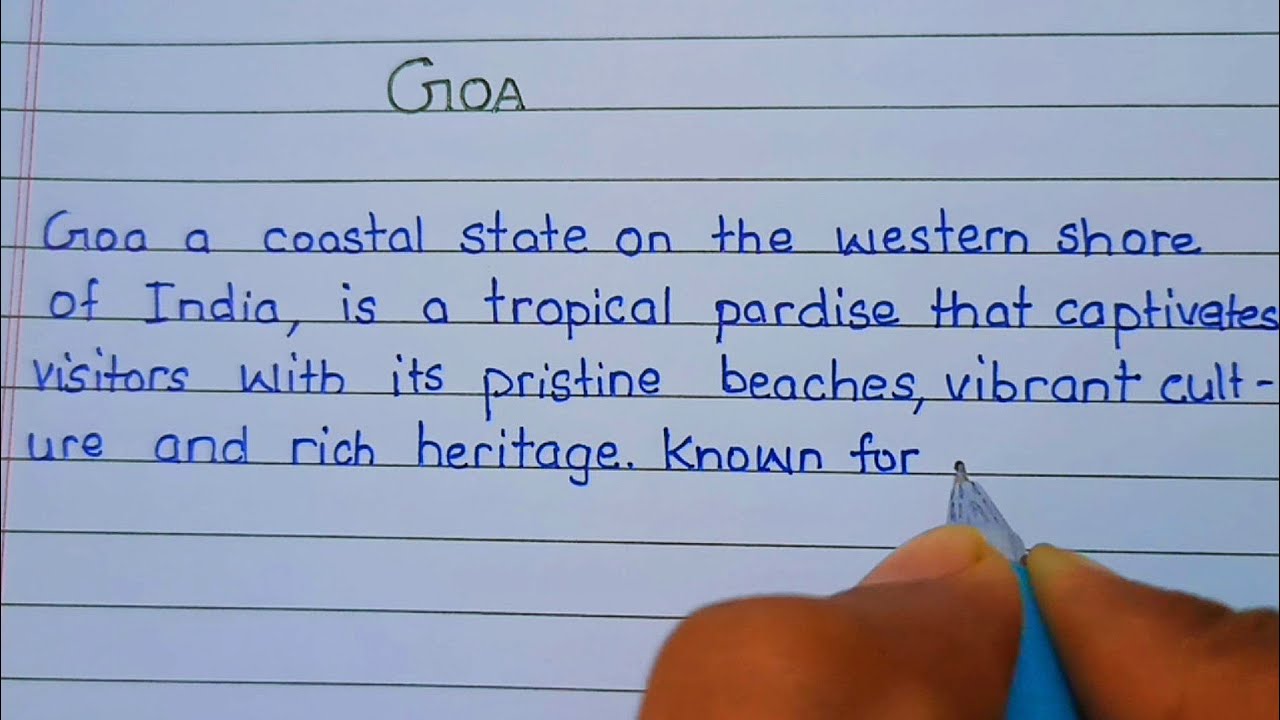 GOA
Goa a coastal state on the western shore
of India, is a tropical pardise that captivates
visitors with its pristine beaches, vibrant cult-
ure and rich heritage. Known for